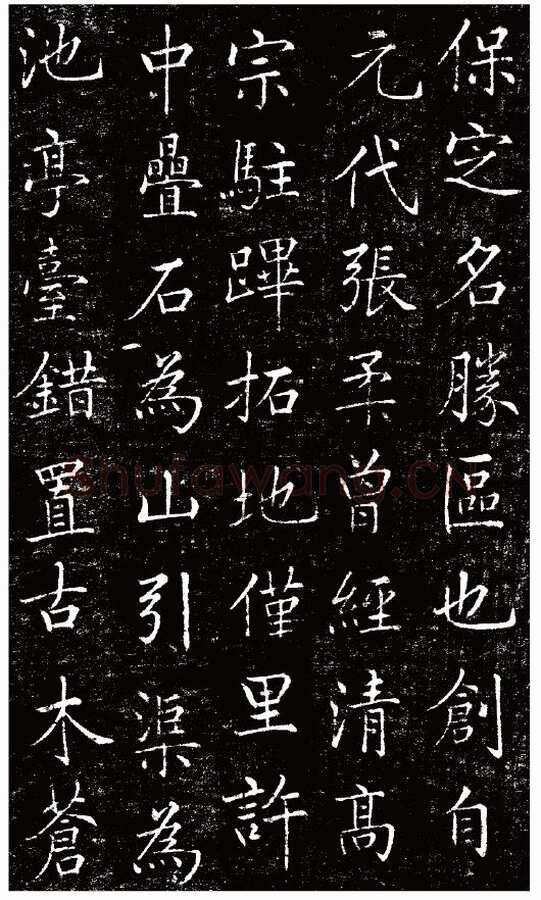 保定名勝區也創自
元代張柔曾經清高
宗駐蹕拓地僅里許
中疊石為山引渠為
池亭臺錯置古木蒼
shufawang.CN